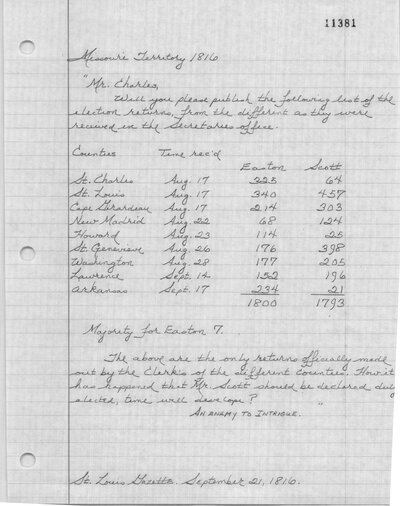 11381
Missouri Territory 1816
"Mr. Charles,
Will you please publish the following list of the
election returns, from the different as they were
received in the Secretaries office.
Counties Time rec'd
Easton Scott
St. Charles Aug. 17 325 64
St. Louis Aug. 17 340 457
Cape Girardeau Aug. 17 214 303
New Madrid Aug. 22 68 124
Howard Aug. 23 114 25
St. Genevieve Aug. 26 176 398
Washington Aug. 28 177 205
Lawrence Sept. 14 152 196
Arkansas Sept. 17 234 21
1800 1793
Majority for Easton 7.
The above are the only returns officially made
out by the Clerks of the different Counties. How it
has happened that Mr. Scott should be declared duly
elected, time will develope? "
AN ENEMY TO INTRIGUE.
St. Louis Gazette. September 21, 1816.